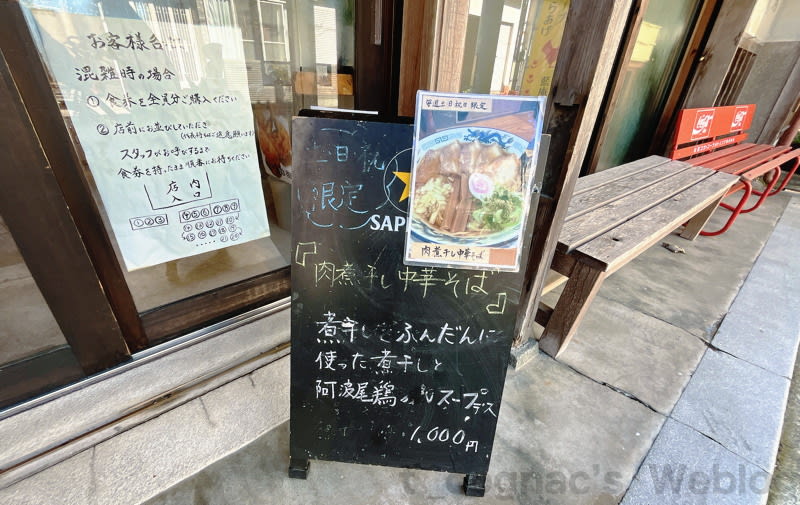 お客様各位
混雑時の場合
① 食券を全員分ご購入ください
② 店前にお並びしていただき
スタッフがお呼びするまで
食券を持ったまま順番にお待ちください
店内
入口
土日祝
限定
SAPP
毎週土日祝日限定
肉煮干し中華そば
『肉煮干し中華そば』
煮干しをふんだんに
使った煮干しと
阿波尾鶏のWスープです
!
1,000円
cognac's Weblo